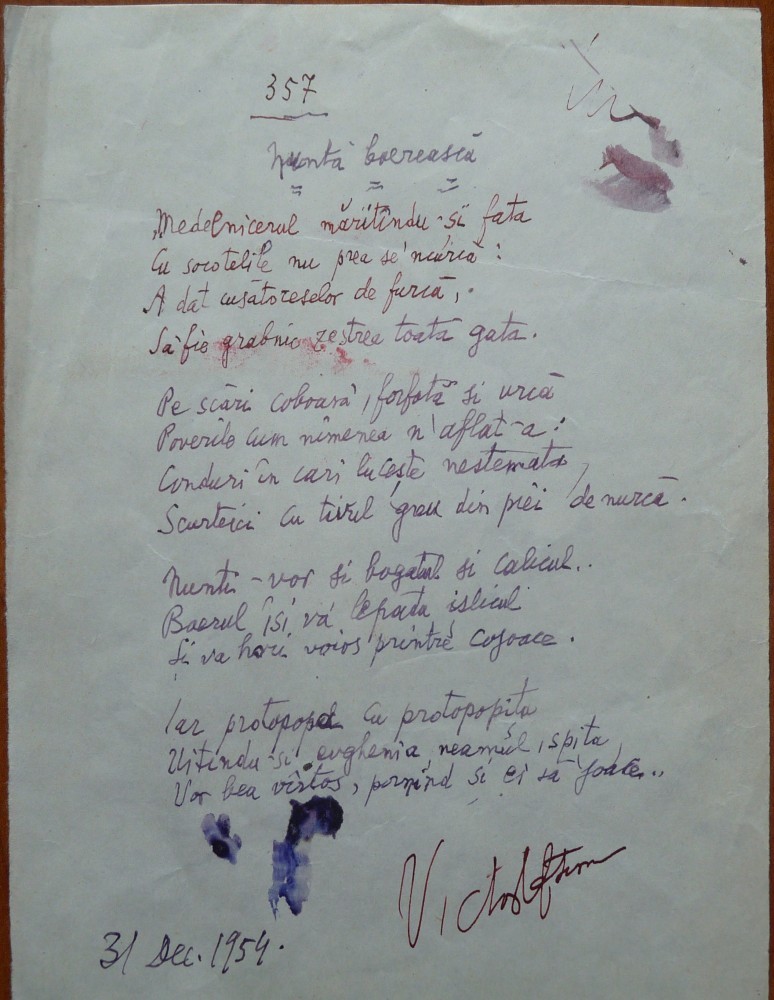 357
Nuntă boerească
Medelnicerul măritîndu-si fata
Cu socotelile nu prea se'ncurcă :
A dat cusătoreselor de furcă,
Să fie grabnic zestrea toată gata.
Pe scări coboară, forfotă si urcă
Poverile cum nimenea n'aflat-a :
Conduri în cari luceste nestemata,
Scurteici cu tivul greu din piei de nurcă.
Nunti-vor si bogatul si calicul..
Boerul îsi va lepăda islicul
Si va hori voios printre cojoace.
Iar protopopul cu protopopita
Uitîndu-si evghenia neamul, spita,
Vor bea vîrtos, pornind si ei să joace..
Victor Eftimiu
31 Dec. 1954.